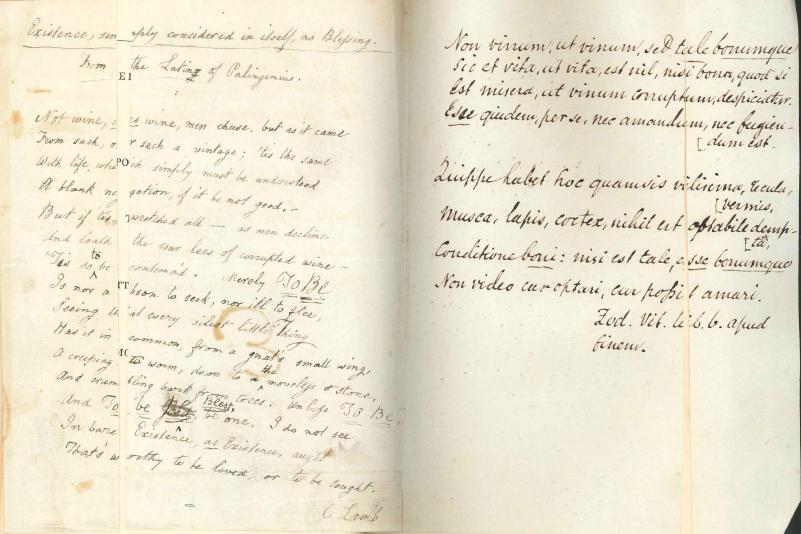 Existence, simply considered in itself, no Blessing.
From the Latin of Palingenius.
Not wine, as wine, men chuse, but as it came
From such, or such a vintage; 'tis the same
With life, which simply must be understood
A blank negation, if it be not good.—
But if 'tis wretched all — as men decline
And loath the sour lees of corrupted wine—
'Tis so to be contemnd. Merely To Be
Is nor a boon to seek, nor ill to flee,
Seeing that every vilest little Thing
Has it in common, from a gnat's small wing,
A creeping worm, down to the moveless stone,
And crumbling bark from trees. Unless To Be,
And To be Blest, be one, I do not see
In bare Existence, as Existence, aught
That's worthy to be loved, or to be sought.
C Lamb
EI
PO
Non vinum, ut vinum, sed tale bonumque
Sic et vita, ut vita, est nil, nisi bona, quod si
Est misera, ut vinum corruptum, despiciatur.
Esse quidem, per se, nec amandum, nec fugien-
[dum est.
Quippe habet hoc quamvis vilissima, Recula,
[vermis,
Musca, lapis, cortex, nihil est optabile demp-
[ta,
Conditione boni: nisi est tale, esse bonumque
Non video cur optari, cur possit amari.
Zod. Vit. lib. 6. apud
finem.